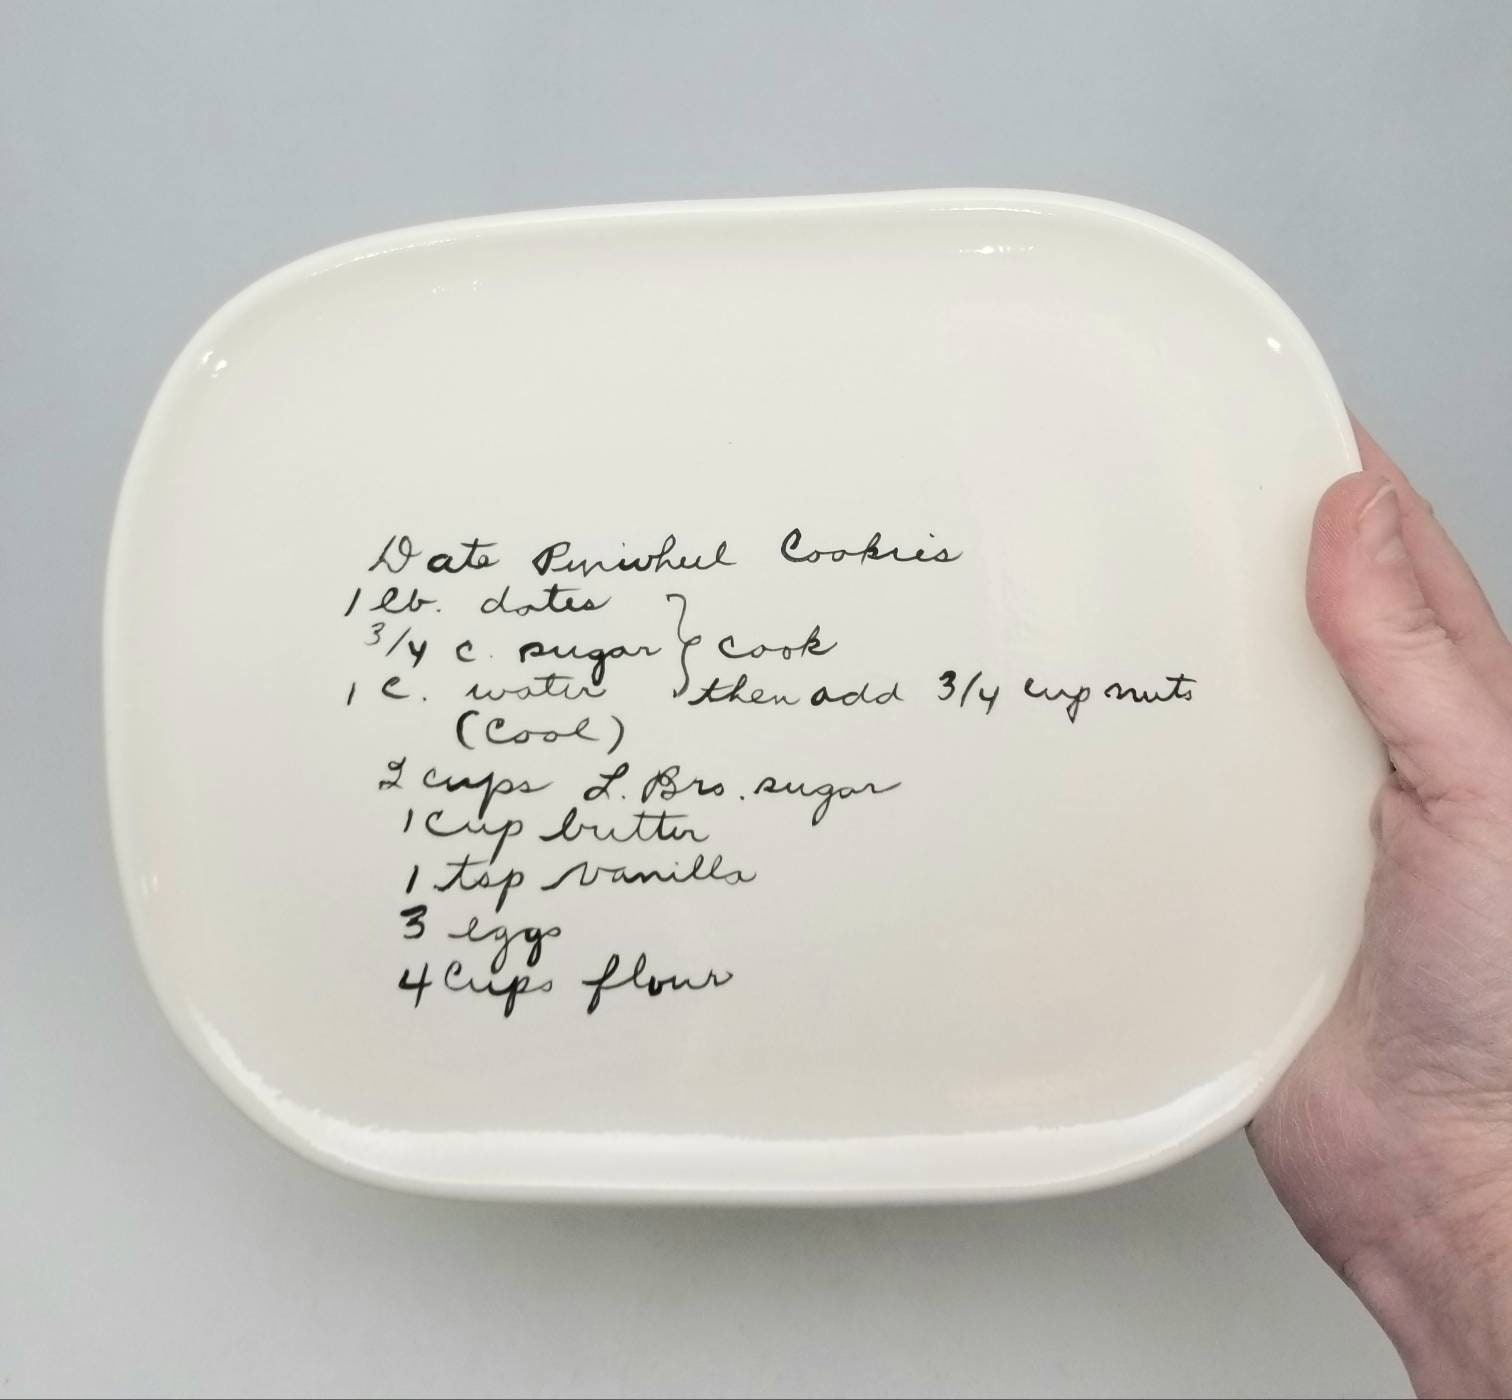 Date Pinwheel Cookies
1 lb. dates
3/4 c. sugar } cook
1 c. water then add 3/4 cup nuts
(Cool)
2 cups L. Bro. sugar
1 Cup butter
1 tsp vanilla
3 eggs
4 Cups flour